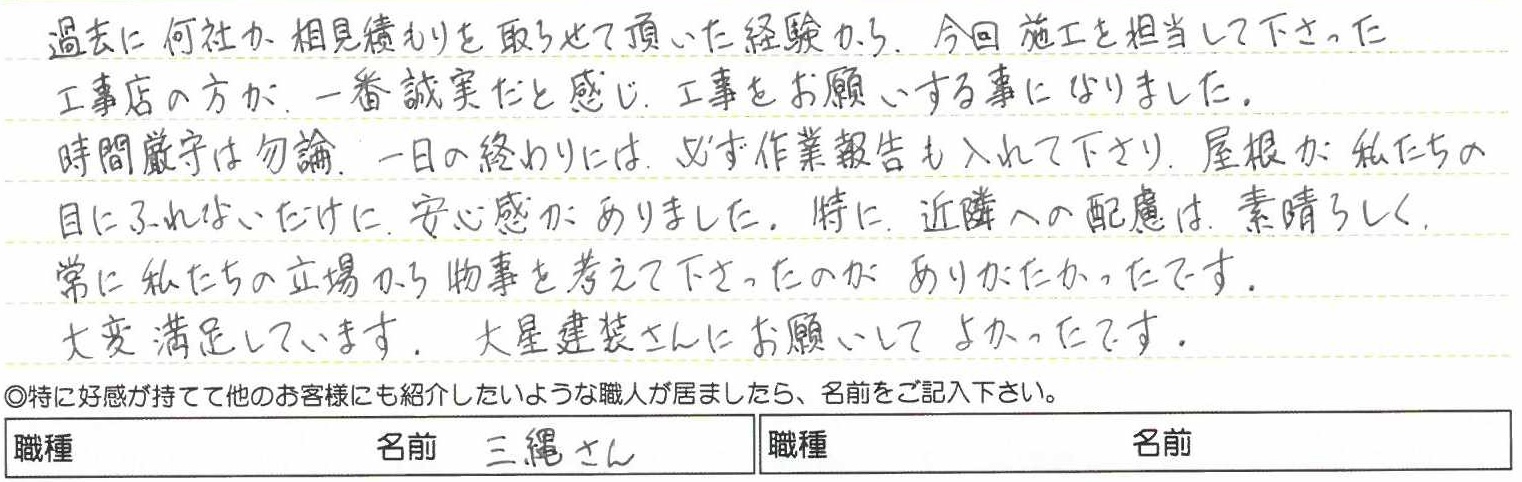 過去に何社か相見積もりを取らせて頂いた経験から、今回施工を担当して下さった
工事店の方が、一番誠実だと感じ、工事をお願いする事になりました。
時間厳守は勿論、一日の終わりには、必ず作業報告も入れて下さり、屋根が私たちの
目にふれないだけに、安心感がありました。特に、近隣への配慮は、素晴らしく、
常に私たちの立場から物事を考えて下さったのが ありがたかったです。
大変満足しています。 大星建装さんにお願いしてよかったです。
◎特に好感が持てて他のお客様にも紹介したいような職人が居ましたら、名前をご記入下さい。
職種 名前 三縄さん 職種 名前